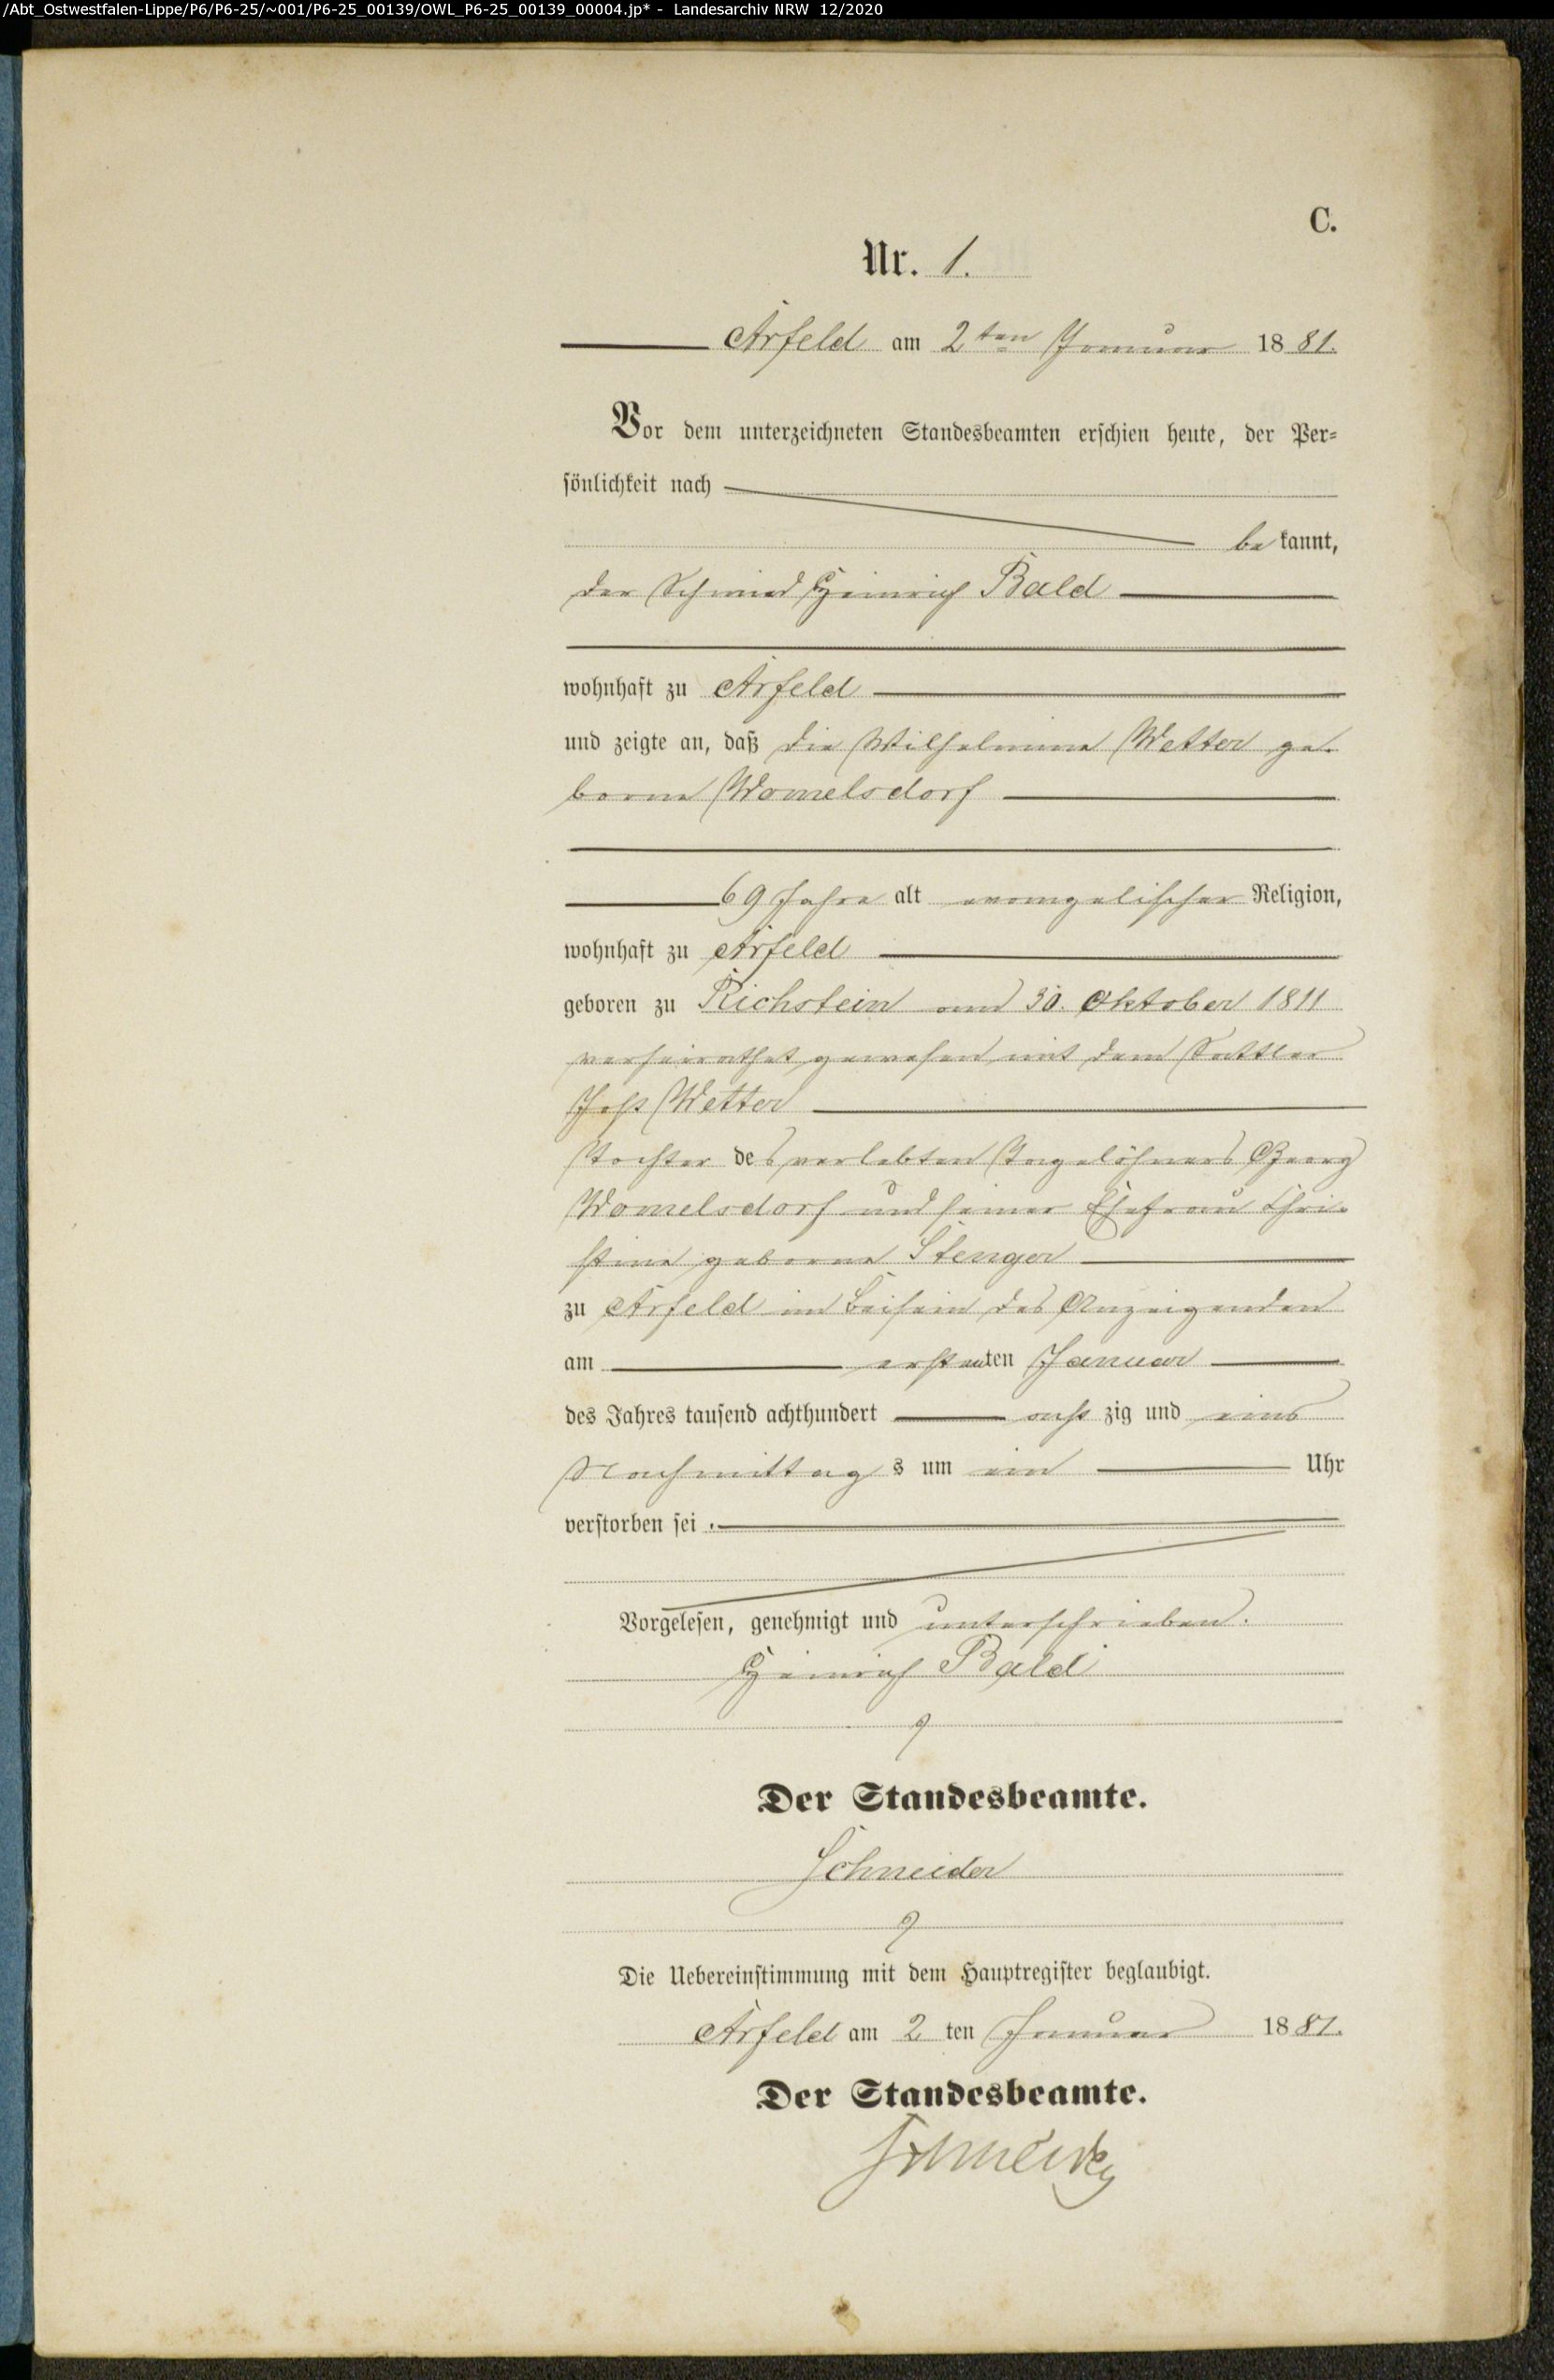 /Abt_Ostwestfalen-Lippe/P6/P6-25/~001/P6-25_00139/OWL_P6-25_00139_00004.jp* - Landesarchiv NRW 12/2020
C.
Nr. 1.
Arfeld am 2ten Januar 1881.
Vor dem unterzeichneten Standesbeamten erschien heute, der Per-
sönlichkeit nach
bekannt,
der Schmied Heinrich Bald
wohnhaft zu Arfeld
und zeigte an, daß die Wilhelmine Wetter ge-
borne Womelsdorf
69 Jahre alt evangelischer Religion,
wohnhaft zu Arfeld
geboren zu Richstein am 30. Oktober 1811
verheirathet gewesen mit dem Sattler
Jost Wetter
Tochter des verlebten Tagelöhners Georg
Womelsdorf und seiner Ehefrau Chri-
stine geborne Stenger
zu Arfeld im Beisein des Anzeigenden
am ersten ten Januar
des Jahres tausend achthundert acht zig und eins
Nachmittag s um ein Uhr
verstorben sei.
Vorgelesen, genehmigt und unterschrieben.
Heinrich Bald
Der Standesbeamte.
Schneider
Die Uebereinstimmung mit dem Hauptregister beglaubigt.
Arfeld am 2 ten Januar 1881.
Der Standesbeamte.
Schneider